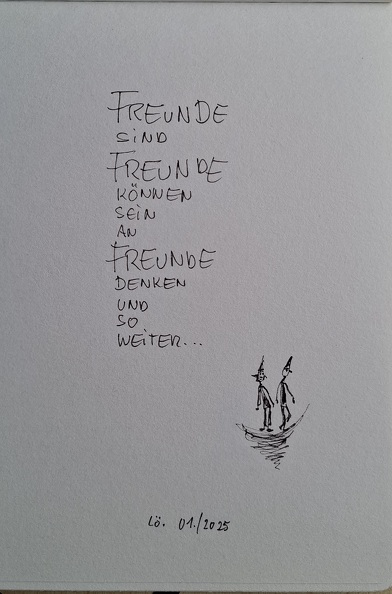 FREUNDE
SiND
FREUNDE
KÖNNEN
SEiN
AN
FREUNDE
DENKEN
UND
SO
WEiTER...
Lö. 01./2025